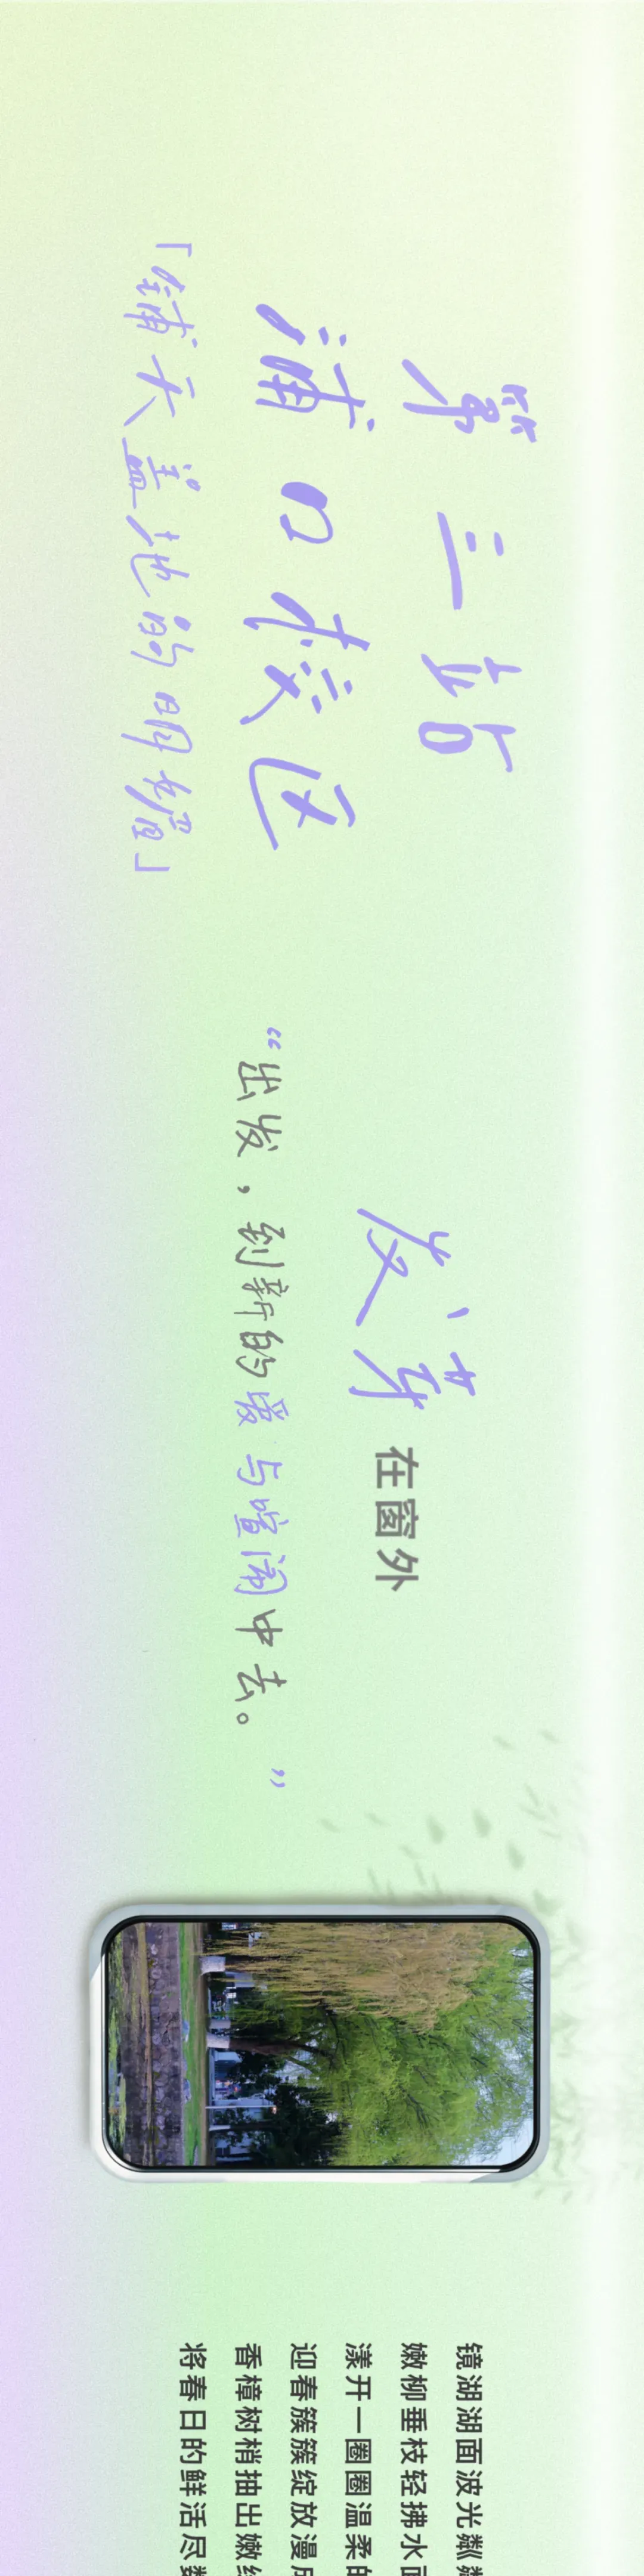 第三站
浦口校区
「铺天盖地的明耀」
发芽在窗外
“出发，到新的爱与喧闹中去。”
镜湖湖面波光粼粼
嫩柳垂枝轻拂水面
漾开一圈圈温柔的
迎春簇簇绽放漫
香樟树梢抽出嫩
将春日的鲜活尽